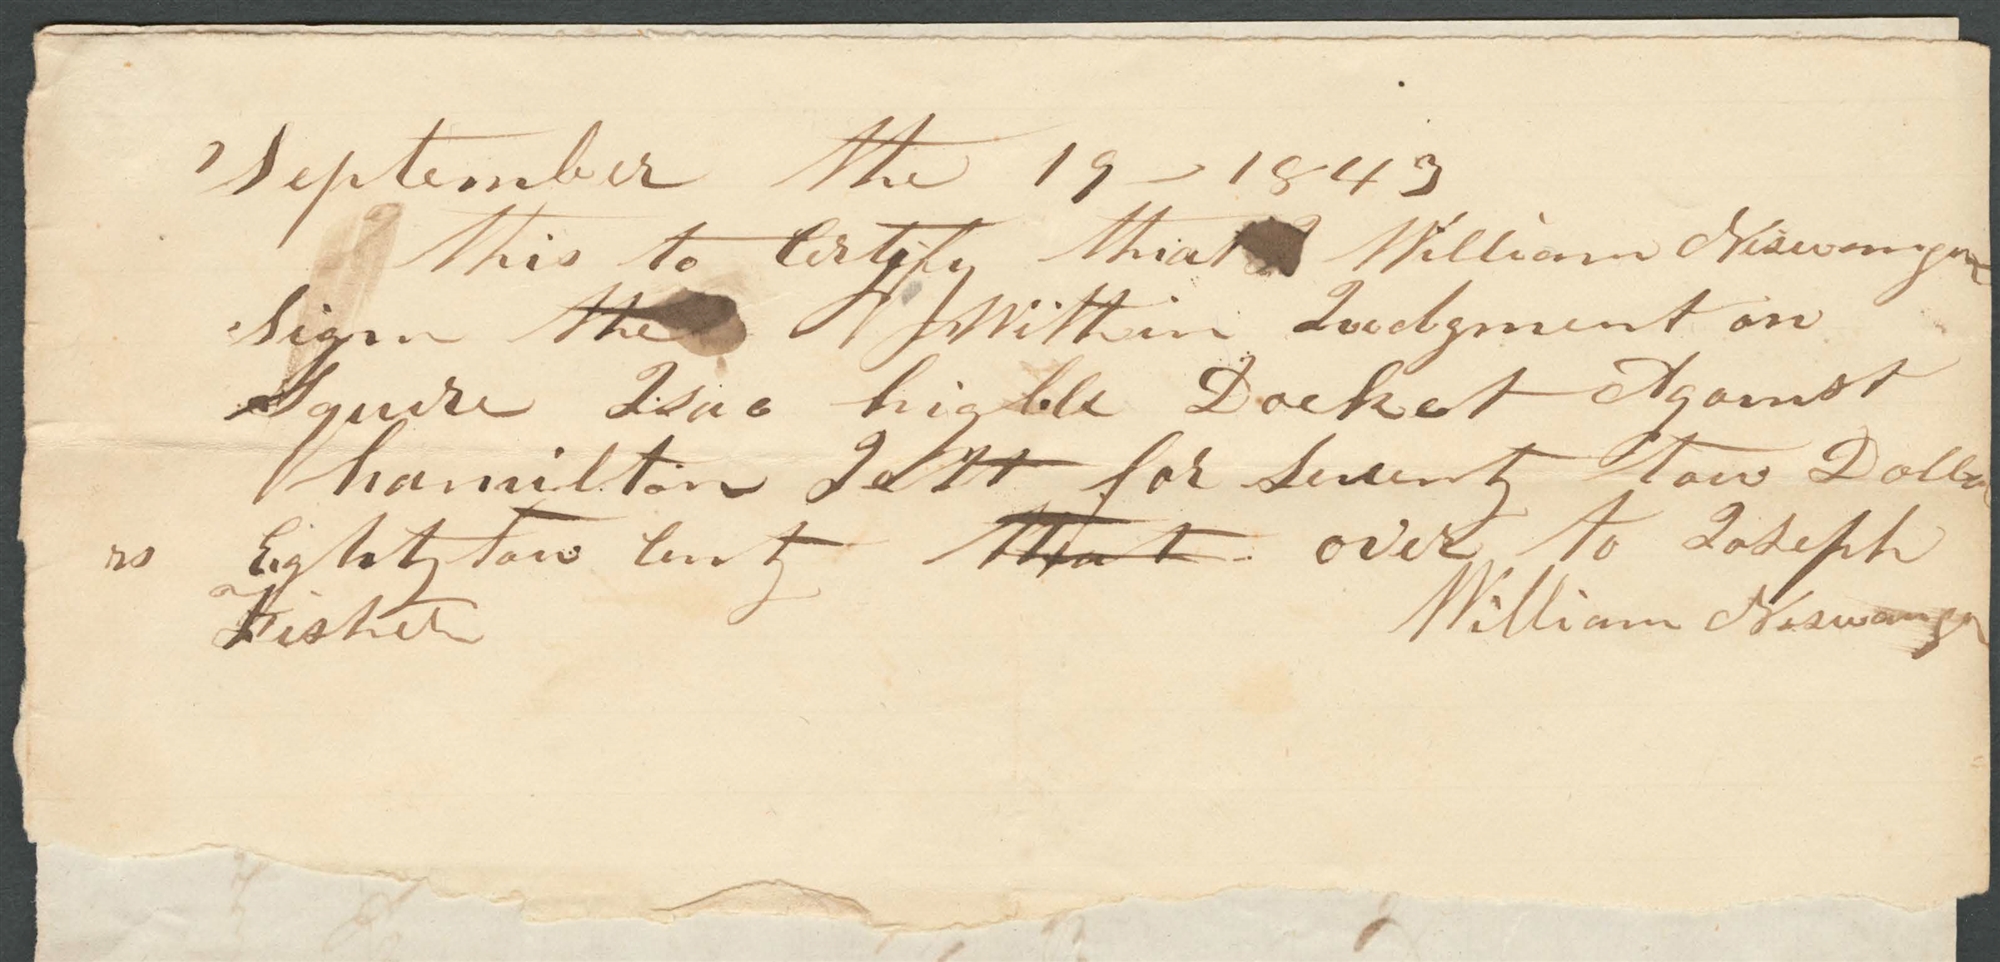 September the 19 - 1843
this to Certify that I William Niswanger
Sign the Within Judgment on
Squire Isac highble Docket Against
hamilton Jett for Seventy tow Dolla
rs Eighty tow Centy that over to Joseph
Fisher William Niswanger